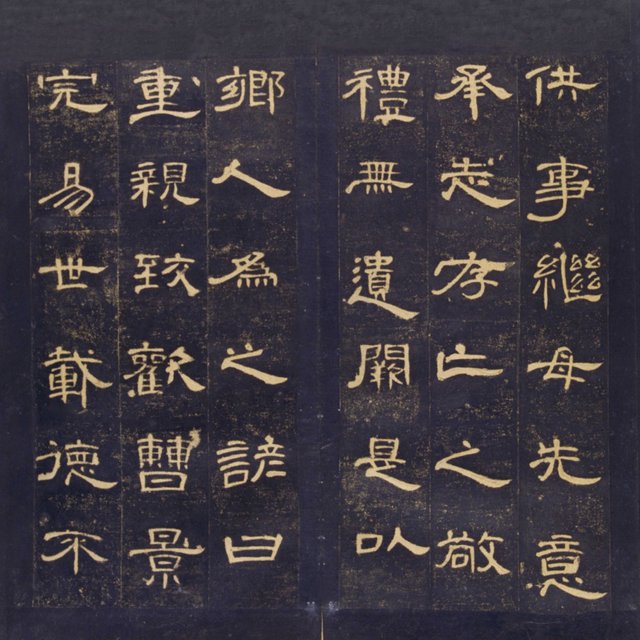 供事繼母先意
承志存亡之敬
禮無遺闕是以
鄉人為之諺曰
重親致歡曹景
完易世載德不